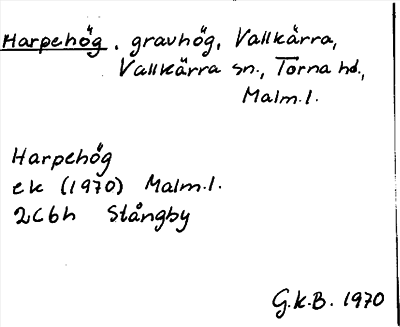 Harpehög. gravhög, Vallkärra,
Vallkärra sn., Torna hd.,
Malm.l.
Harpehög
ek (1970) Malm.l.
2C6h Stångby
G.K.B. 1970